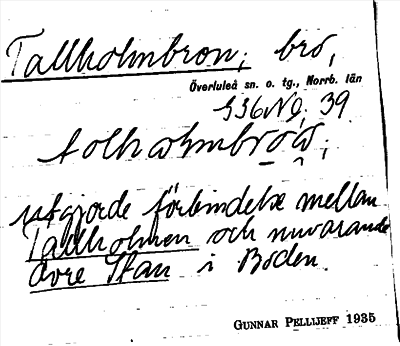 Tallholmbron, bro,
Överluleå sn. o. tg., Norrb. län
S36NO, 39
utgjorde förbindelse mellan
Tallholmen och nuvarande
övre Stan i Boden.
GUNNAR PELLIJEFF 1935